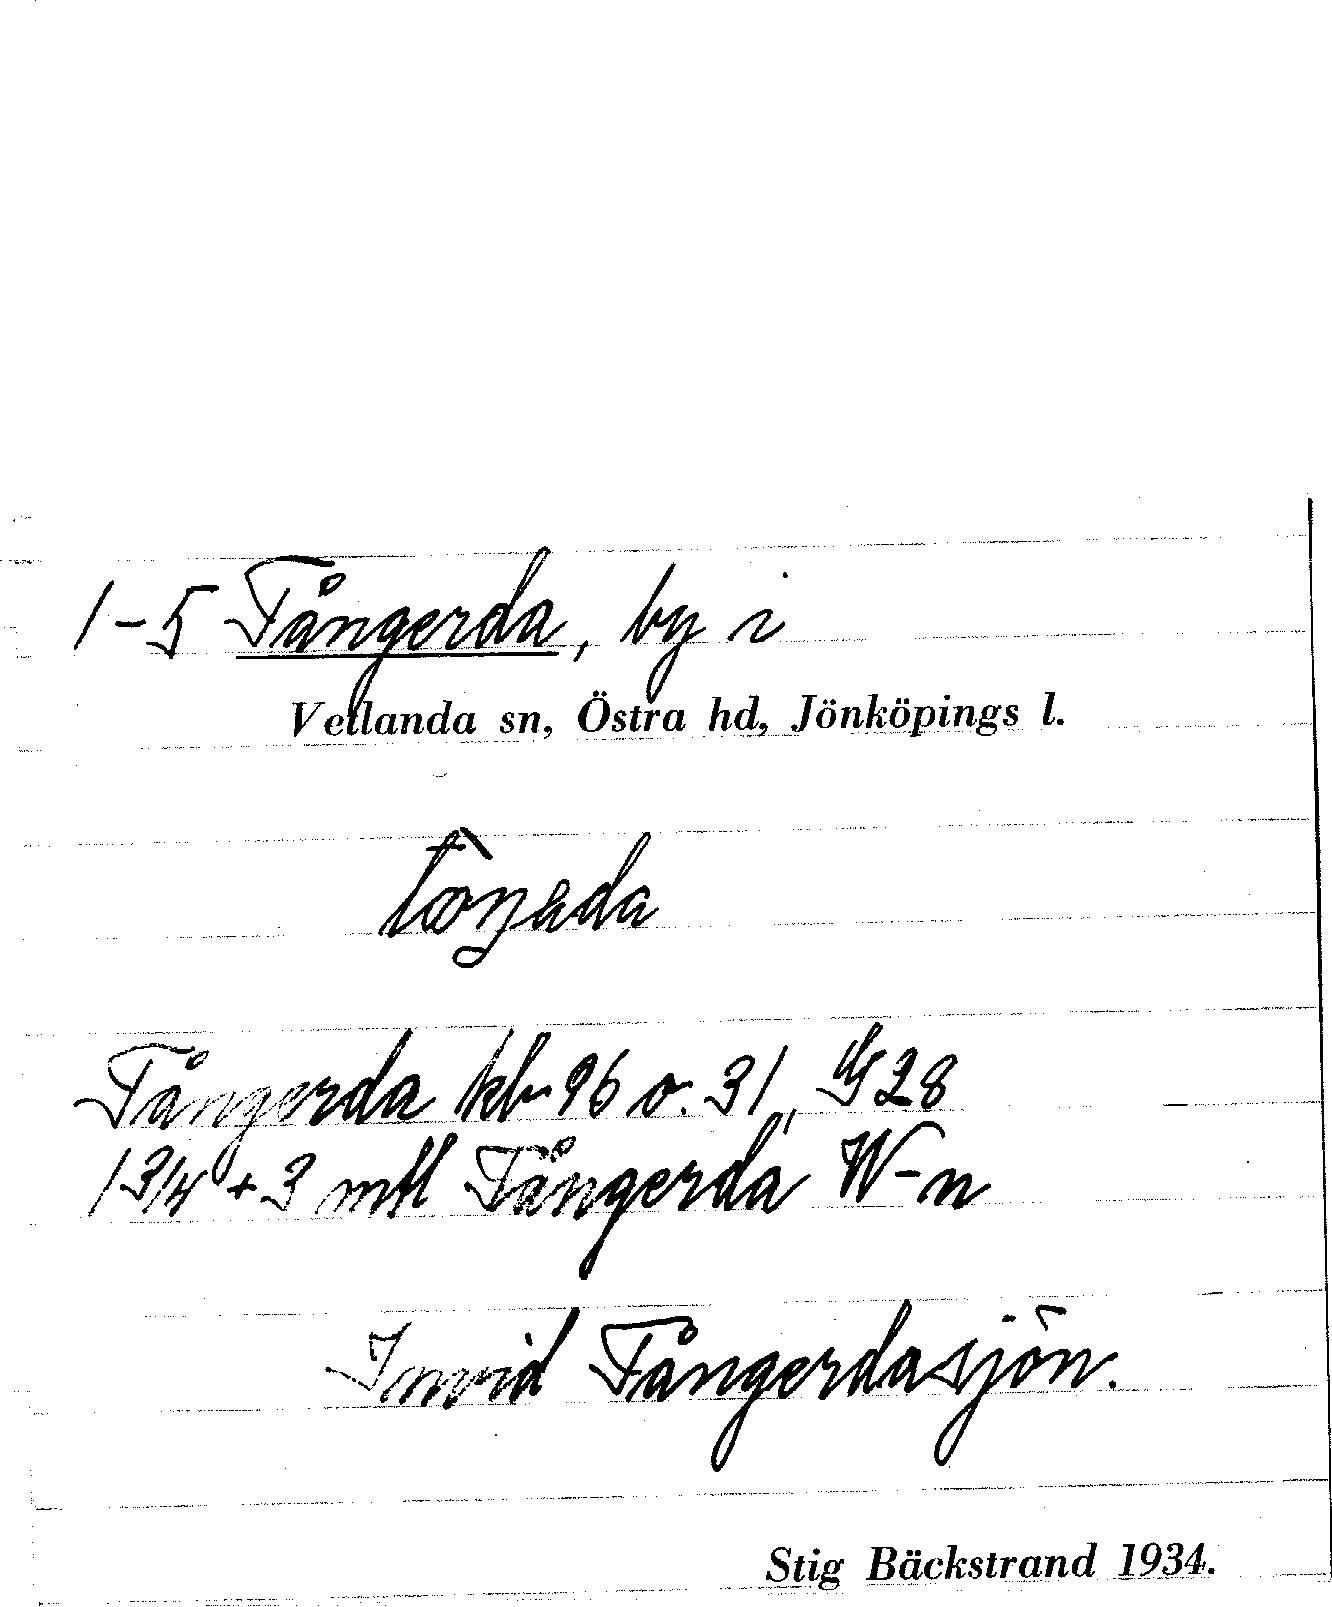 1-5 Fångerda, by i
Vetlanda sn, Östra hd, Jönköpings l.
Fångerda kb 96 o. 31, G 28
1 3/4 + 3 mtl Fångerda W-n
Invid Fångerdasjön.
Stig Bäckstrand 1934.